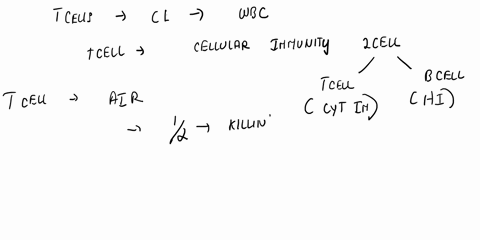 T CELLS → CL → WBC
T CELL → CELLULAR IMMUNITY 2 CELL
T CELL B CELL
T CELL → AIR ( CYT IN) ( HI )
→ 1/2 → KILLIN